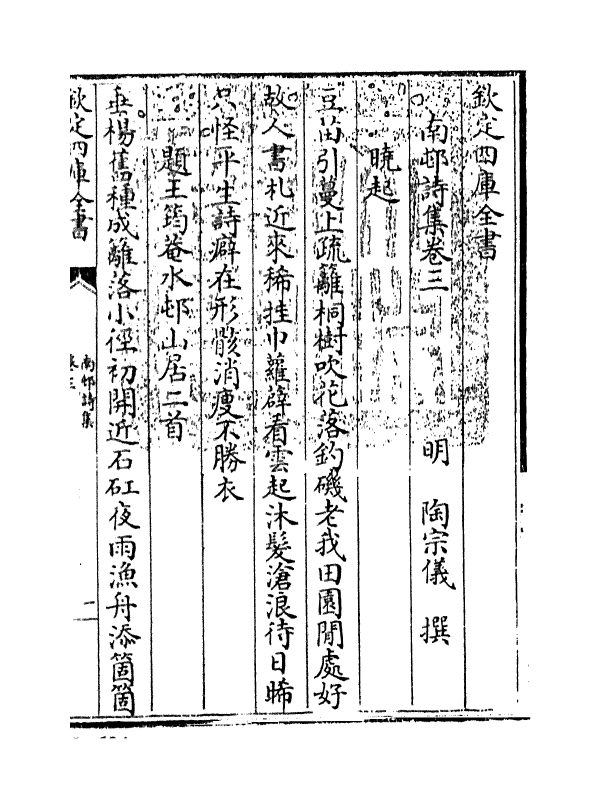 欽定四庫全書
南邨詩集卷三
明 陶宗儀 撰
曉起
豆苗引蔓上疏籬桐樹吹花落釣磯老我田園閒處好
故人書札近來稀挂巾蘿薜看雲起沐髮滄浪待日晞
只怪平生詩癖在形骸消瘦不勝衣
題王筠菴水邨山居二首
垂楊舊種成籬落小徑初開近石矼夜雨漁舟添箇箇
欽定四庫全書
南邨詩集
卷三
一